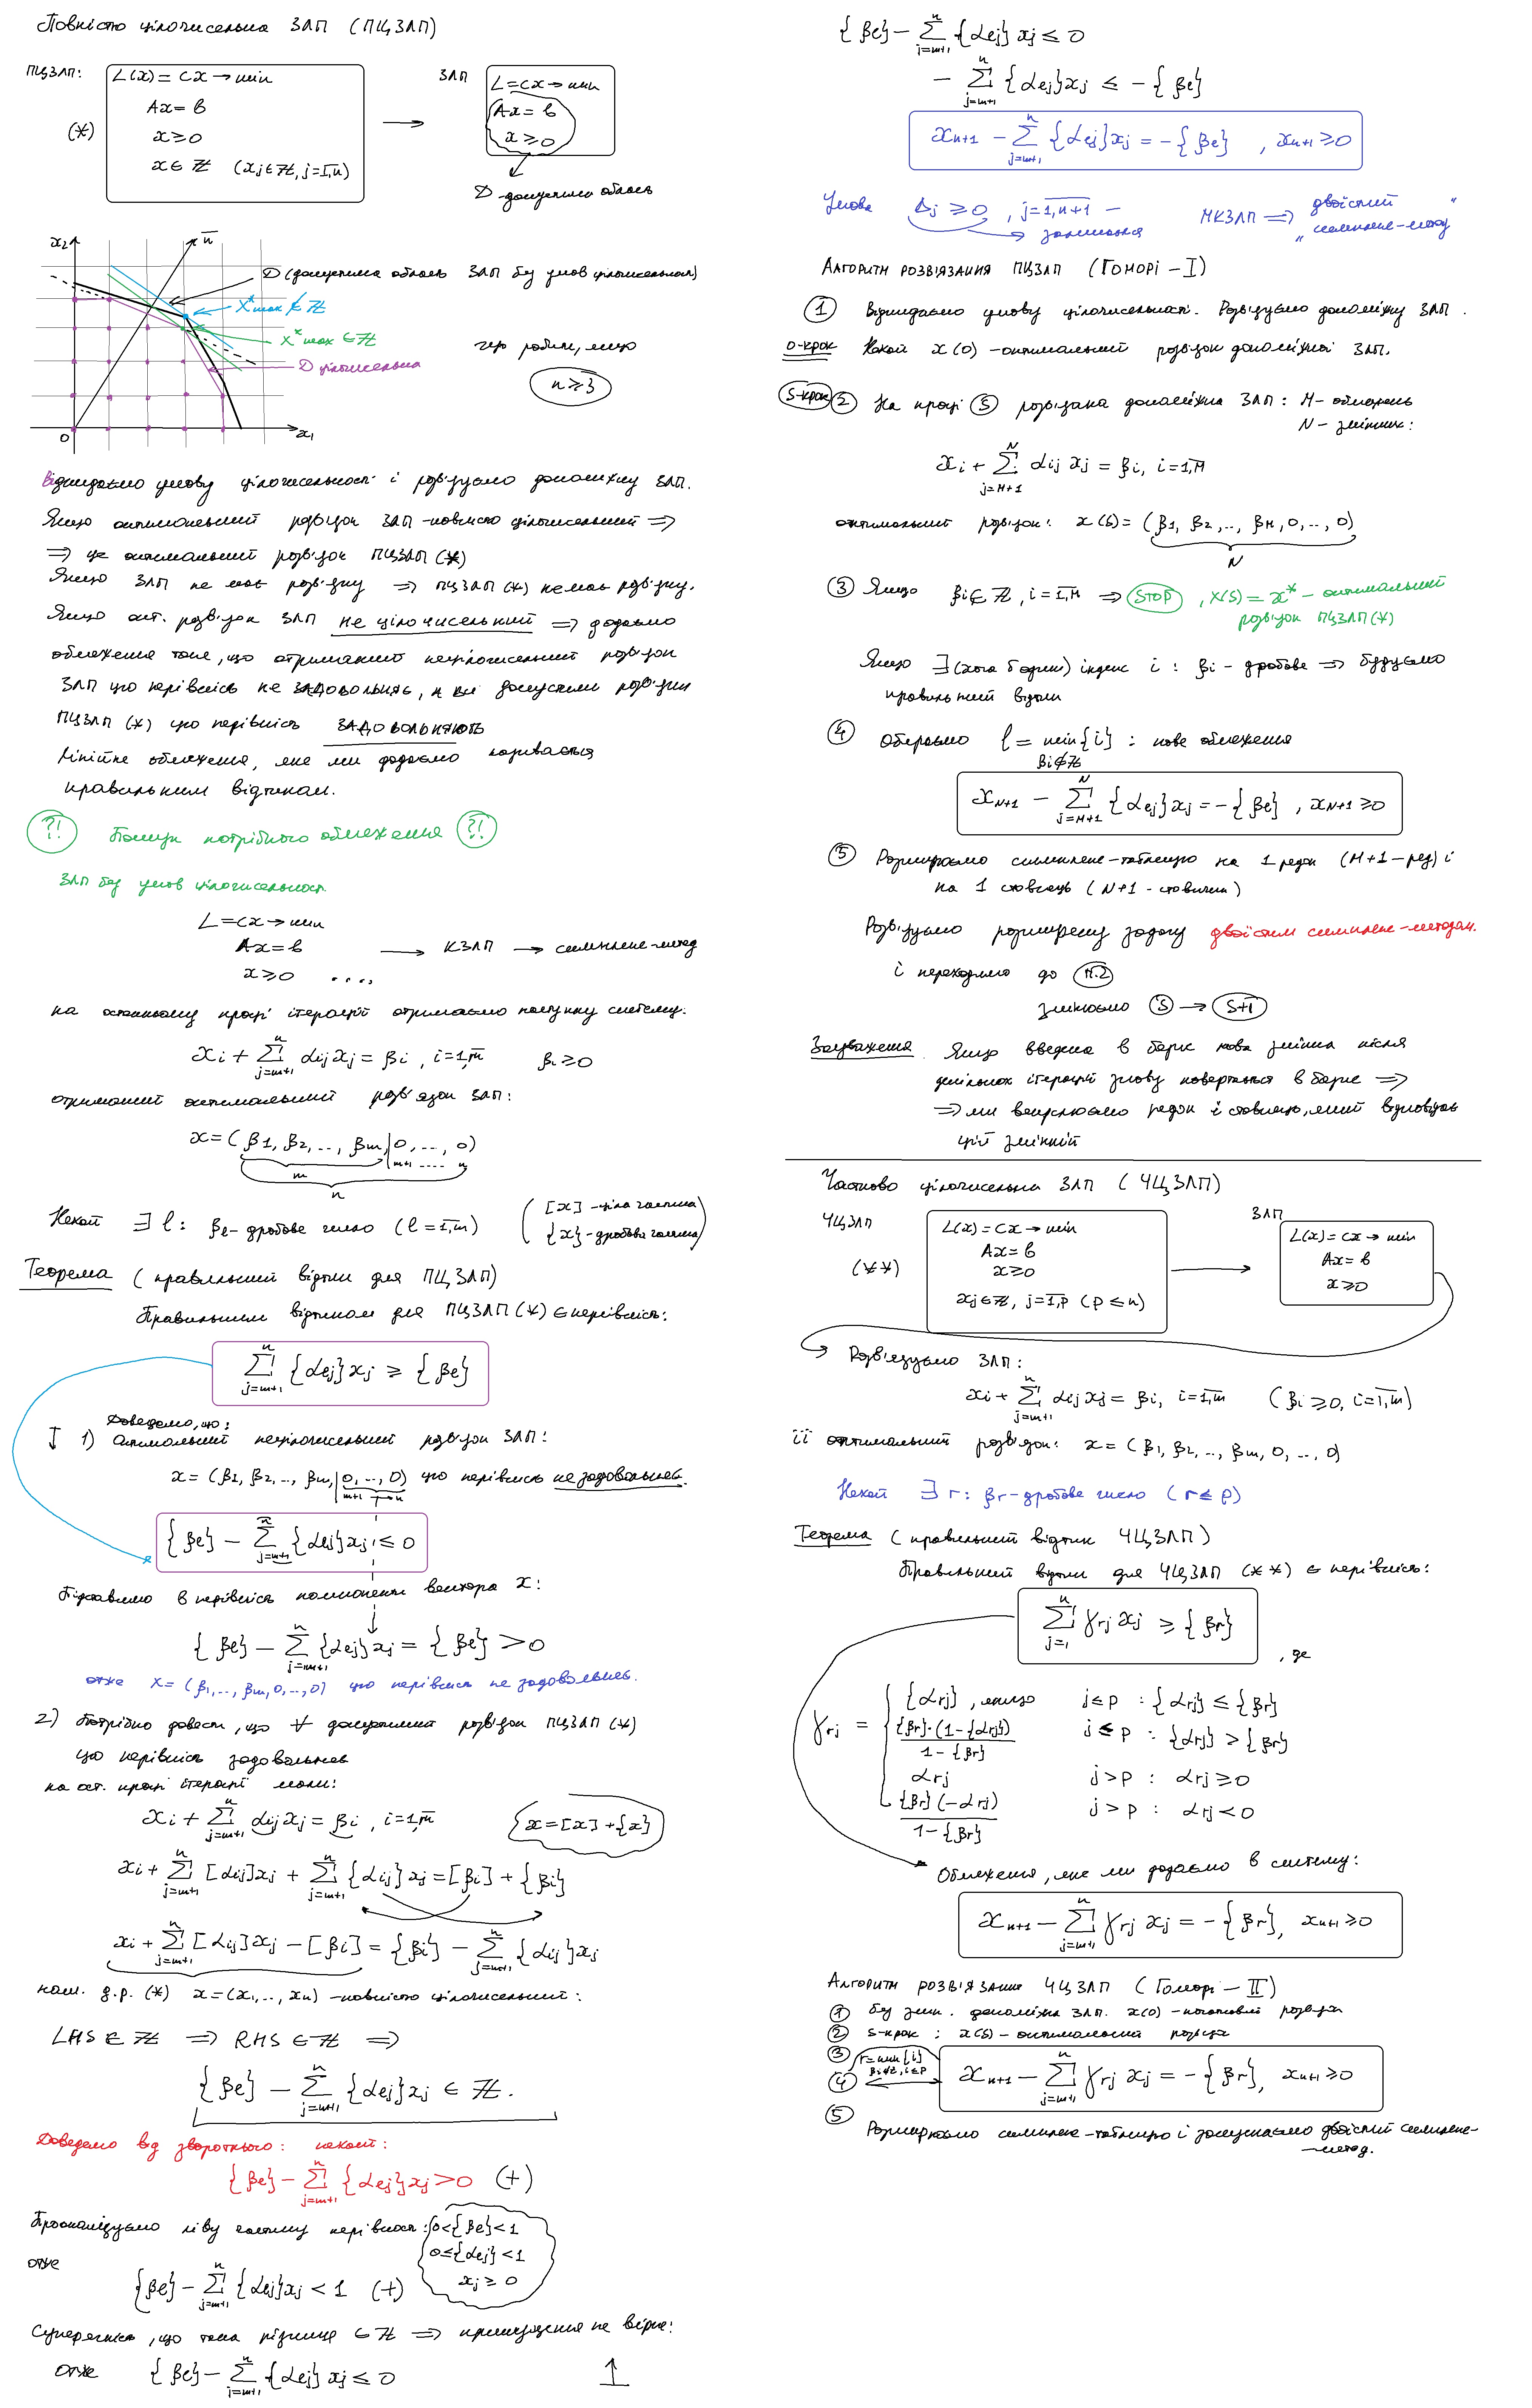 Повністю цілочисельна ЗЛП (ПЦЗЛП)
ПЦЗЛП:
(*)
L(x) = cx → min
Ax = b
x ≥ 0
x ∈ ℤ (xj ∈ ℤ, j = 1,n)
→
ЗЛП
L = cx → min
Ax = b
x ≥ 0
D - допустима область
x2
n̄
D (допустима область ЗЛП без умов цілочисельності)
X*max ∉ ℤ
X*max ∈ ℤ
D цілочисельна
0
x1
n ≥ 3
Відкидаємо умову цілочисельності і розв'язуємо допоміжну ЗЛП.
Якщо оптимальний розв'язок ЗЛП - повністю цілочисельний ⇒
⇒ це оптимальний розв'язок ПЦЗЛП (*)
Якщо ЗЛП не має розв'язку ⇒ ПЦЗЛП (*) не має розв'язку.
Якщо опт. розв'язок ЗЛП не цілочисельний ⇒ додаємо
обмеження таке, що отриманий нецілочисельний розв'язок
ЗЛП цю нерівність не ЗАДОВОЛЬНЯЄ, а всі допустимі розв'язки
ПЦЗЛП (*) цю нерівність ЗАДОВОЛЬНЯЮТЬ
Лінійне обмеження, яке ми додаємо називається
правильним відтином.
?! Пошук потрібного обмеження ?!
ЗЛП без умов цілочисельності
L = cx → min
Ax = b → КЗЛП → симплекс-метод
x ≥ 0 ....
на останньому кроці ітерації отримаємо наступну систему:
xi + Σ_{j=m+1}^{n} αij xj = βi, i = 1,m βi ≥ 0
отриманий оптимальний розв'язок ЗЛП:
x = (β1, β2, .., βm, 0, .., 0)
m m+1 .... n
n
Нехай ∃ l: βl - дробове число (l = 1,m) ([x] - ціла частина
{x} - дробова частина)
Теорема (правильний відтин для ПЦЗЛП)
Правильним відтином для ПЦЗЛП (*) є нерівність:
Σ_{j=m+1}^{n} {αlj} xj ≥ {βl}
Доведемо, що:
1) Оптимальний нецілочисельний розв'язок ЗЛП:
x = (β1, β2, .., βm, 0, .., 0) цю нерівність не задовольняє.
m+1 n
{βl} - Σ_{j=m+1}^{n} {αlj} xj ≤ 0
Підставимо в нерівність компоненти вектора x:
{βl} - Σ_{j=m+1}^{n} {αlj} xj = {βl} > 0
отже x = (β1, .., βm, 0, .., 0) цю нерівність не задовольняє.
2) Потрібно довести, що ∀ допустимий розв'язок ПЦЗЛП (*)
цю нерівність задовольняє
на ост. кроці ітерації мали:
xi + Σ_{j=m+1}^{n} αij xj = βi, i = 1,m x = [x] + {x}
xi + Σ_{j=m+1}^{n} [αij] xj + Σ_{j=m+1}^{n} {αij} xj = [βi] + {βi}
xi + Σ_{j=m+1}^{n} [αij] xj - [βi] = {βi} - Σ_{j=m+1}^{n} {αij} xj
д.р. (*) x = (x1, .., xn) - повністю цілочисельний:
LHS ∈ ℤ ⇒ RHS ∈ ℤ ⇒
{βl} - Σ_{j=m+1}^{n} {αlj} xj ∈ ℤ.
Доведемо від зворотнього: нехай:
{βl} - Σ_{j=m+1}^{n} {αlj} xj > 0 (+)
Проаналізуємо ліву частину нерівності: 0 < {βl} < 1
0 ≤ {αlj} < 1
xj ≥ 0
отже
{βl} - Σ_{j=m+1}^{n} {αlj} xj < 1 (+)
Суперечність, що така різниця ∈ ℤ ⇒ припущення не вірне:
отже {βl} - Σ_{j=m+1}^{n} {αlj} xj ≤ 0
{βl} - Σ_{j=m+1}^{n} {αlj} xj ≤ 0
- Σ_{j=m+1}^{n} {αlj} xj ≤ - {βl}
xn+1 - Σ_{j=m+1}^{n} {αlj} xj = - {βl}, xn+1 ≥ 0
Умова Δj ≥ 0, j = 1,n+1 - залишився
МКЗЛП ⇒ "двоїстий симплекс-метод"
АЛГОРИТМ РОЗВ'ЯЗАННЯ ПЦЗЛП (ГОМОРІ - I)
1 Відкидаємо умову цілочисельності. Розв'язуємо допоміжну ЗЛП.
0-крок Нехай x(0) - оптимальний розв'язок допоміжної ЗЛП.
S-крок 2 На кроці S розв'язана допоміжна ЗЛП: M - обмежень
N - змінних:
xi + Σ_{j=M+1}^{N} αij xj = βi, i = 1,M
оптимальний розв'язок: x(s) = (β1, β2, .., βM, 0, .., 0)
N
3 Якщо βi ∈ ℤ, i = 1,M ⇒ STOP, x(s) = x* - оптимальний
розв'язок ПЦЗЛП (*)
Якщо ∃ (хоча б один) індекс i: βi - дробове ⇒ будуємо
правильний відтин
4 Обираємо l = min{i} : нове обмеження
βi ∉ ℤ
xN+1 - Σ_{j=M+1}^{N} {αlj} xj = - {βl}, xN+1 ≥ 0
5 Розширюємо симплекс-таблицю на 1 рядок (M+1 - ряд) і
на 1 стовпець (N+1 - стовпчик)
Розв'язуємо розширену задачу двоїстим симплекс-методом.
і переходимо до п.2
змінюємо S → S+1
Зауваження Якщо введена в базис нова змінна після
декількох ітерацій знову повертається в базис ⇒
⇒ ми викреслюємо рядок і стовпець, який відповідає
цій змінній
Частково цілочисельна ЗЛП (ЧЦЗЛП)
ЧЦЗЛП
(**)
L(x) = cx → min
Ax = b
x ≥ 0
xj ∈ ℤ, j = 1,p (p ≤ n)
→
ЗЛП
L(x) = cx → min
Ax = b
x ≥ 0
Розв'язуємо ЗЛП:
xi + Σ_{j=m+1}^{n} αij xj = βi, i = 1,m (βi ≥ 0, i = 1,m)
її оптимальний розв'язок: x = (β1, β2, .., βm, 0, .., 0)
Нехай ∃ r: βr - дробове число (r ≤ p)
Теорема (правильний відтин ЧЦЗЛП)
Правильний відтин для ЧЦЗЛП (**) є нерівність:
Σ_{j=1}^{n} γrj xj ≥ {βr}
, де
γrj = {αrj}, якщо j ≤ p : {αrj} ≤ {βr}
{βr}·(1-{αrj}) / 1-{βr} j ≤ p : {αrj} > {βr}
αrj j > p : αrj ≥ 0
{βr}(-αrj) / 1-{βr} j > p : αrj < 0
Обмеження, яке ми додаємо в систему:
xn+1 - Σ_{j=m+1}^{n} γrj xj = - {βr}, xn+1 ≥ 0
АЛГОРИТМ РОЗВ'ЯЗАННЯ ЧЦЗЛП (Гоморі - II)
1 без змін. допоміжна ЗЛП. x(0) - початковий розв'язок
2 s-крок : x(s) - оптимальний розв'язок
3 r = min{i}
βi ∉ ℤ, i ≤ p
4 xn+1 - Σ_{j=m+1}^{n} γrj xj = - {βr}, xn+1 ≥ 0
5 Розширюємо симплекс-таблицю і запускаємо двоїстий симплекс-
метод.